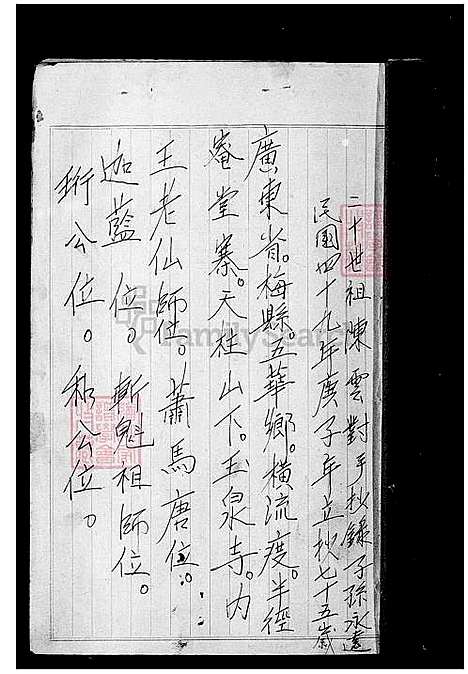 二十世祖陳雲對手抄錄子孫永遠
民國四十九年庚子年立抄七十五歲
廣東省。梅縣。五華鄉。橫流度。半徑
庵堂寨。天柱山下。玉泉寺。內
王老仙師位。蕭馬唐位。
迦藍位。斬魁祖師位。
珩公位。和公位。
FamilySearch